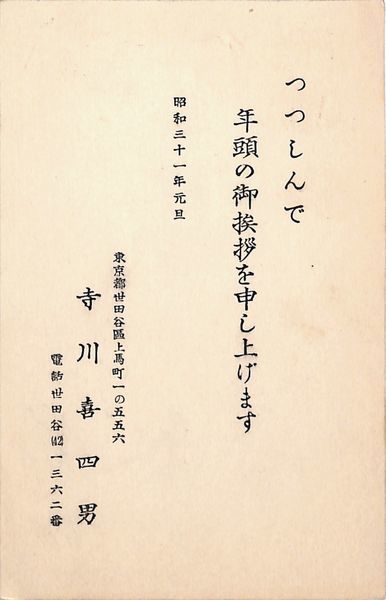 つつしんで
年頭の御挨拶を申し上げます
昭和三十一年元旦
東京都世田谷區上馬町一の五五六
寺川喜四男
電話世田谷(42)一三六二番